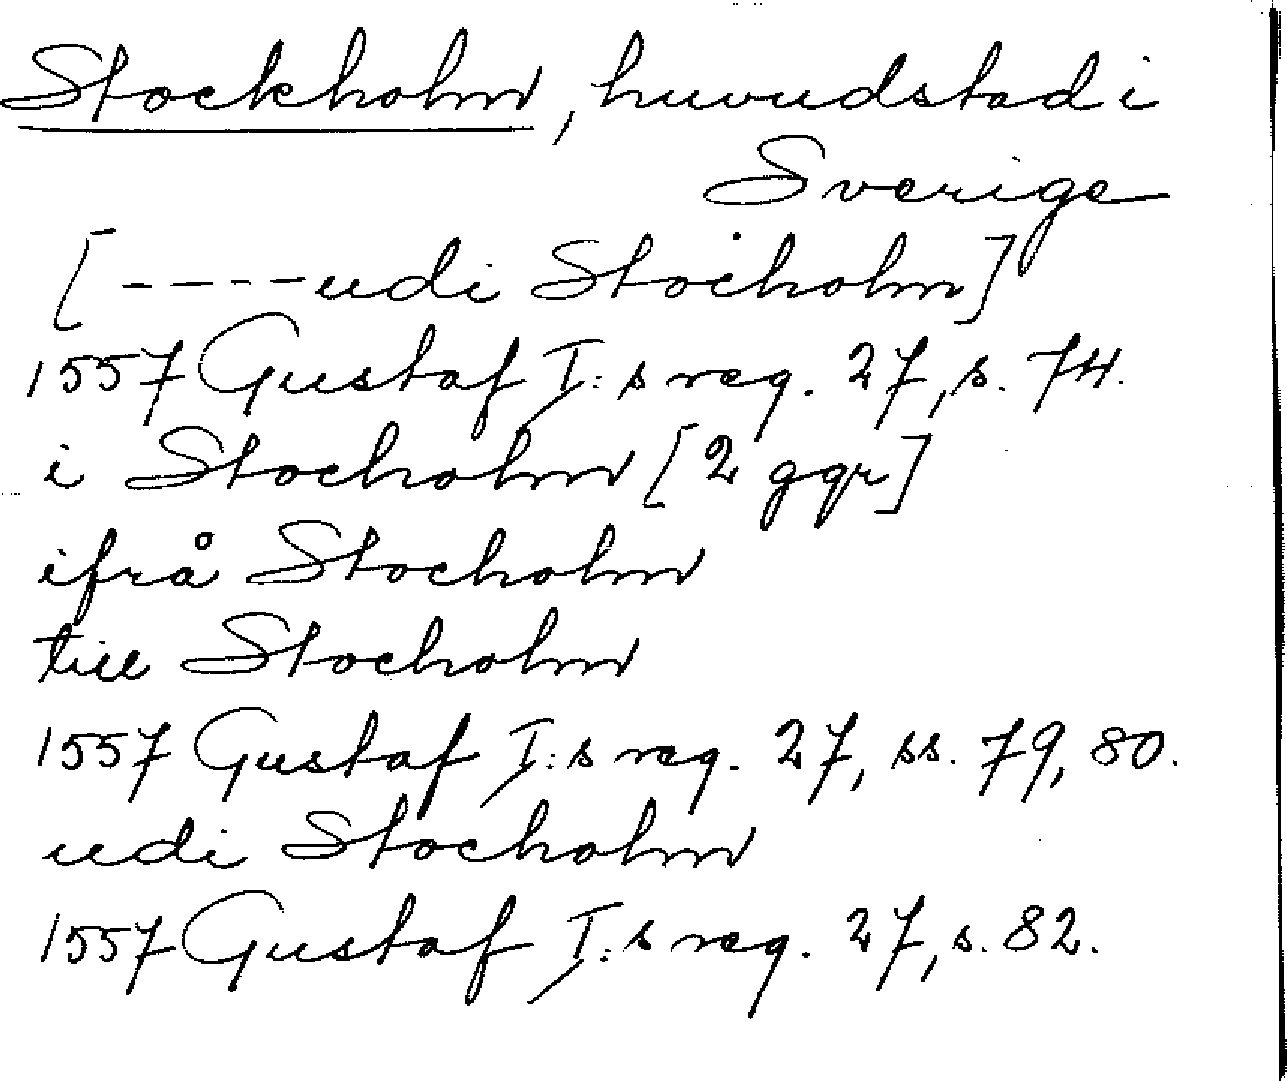 Stockholm, huvudstad i
Sverige
[----udi Stocholm]
1557 Gustaf I:s reg. 27, s. 74.
i Stocholm [2 ggr]
ifrå Stocholm
till Stocholm
1557 Gustaf I:s reg. 27, ss. 79, 80.
udi Stocholm
1557 Gustaf I:s reg. 27, s. 82.